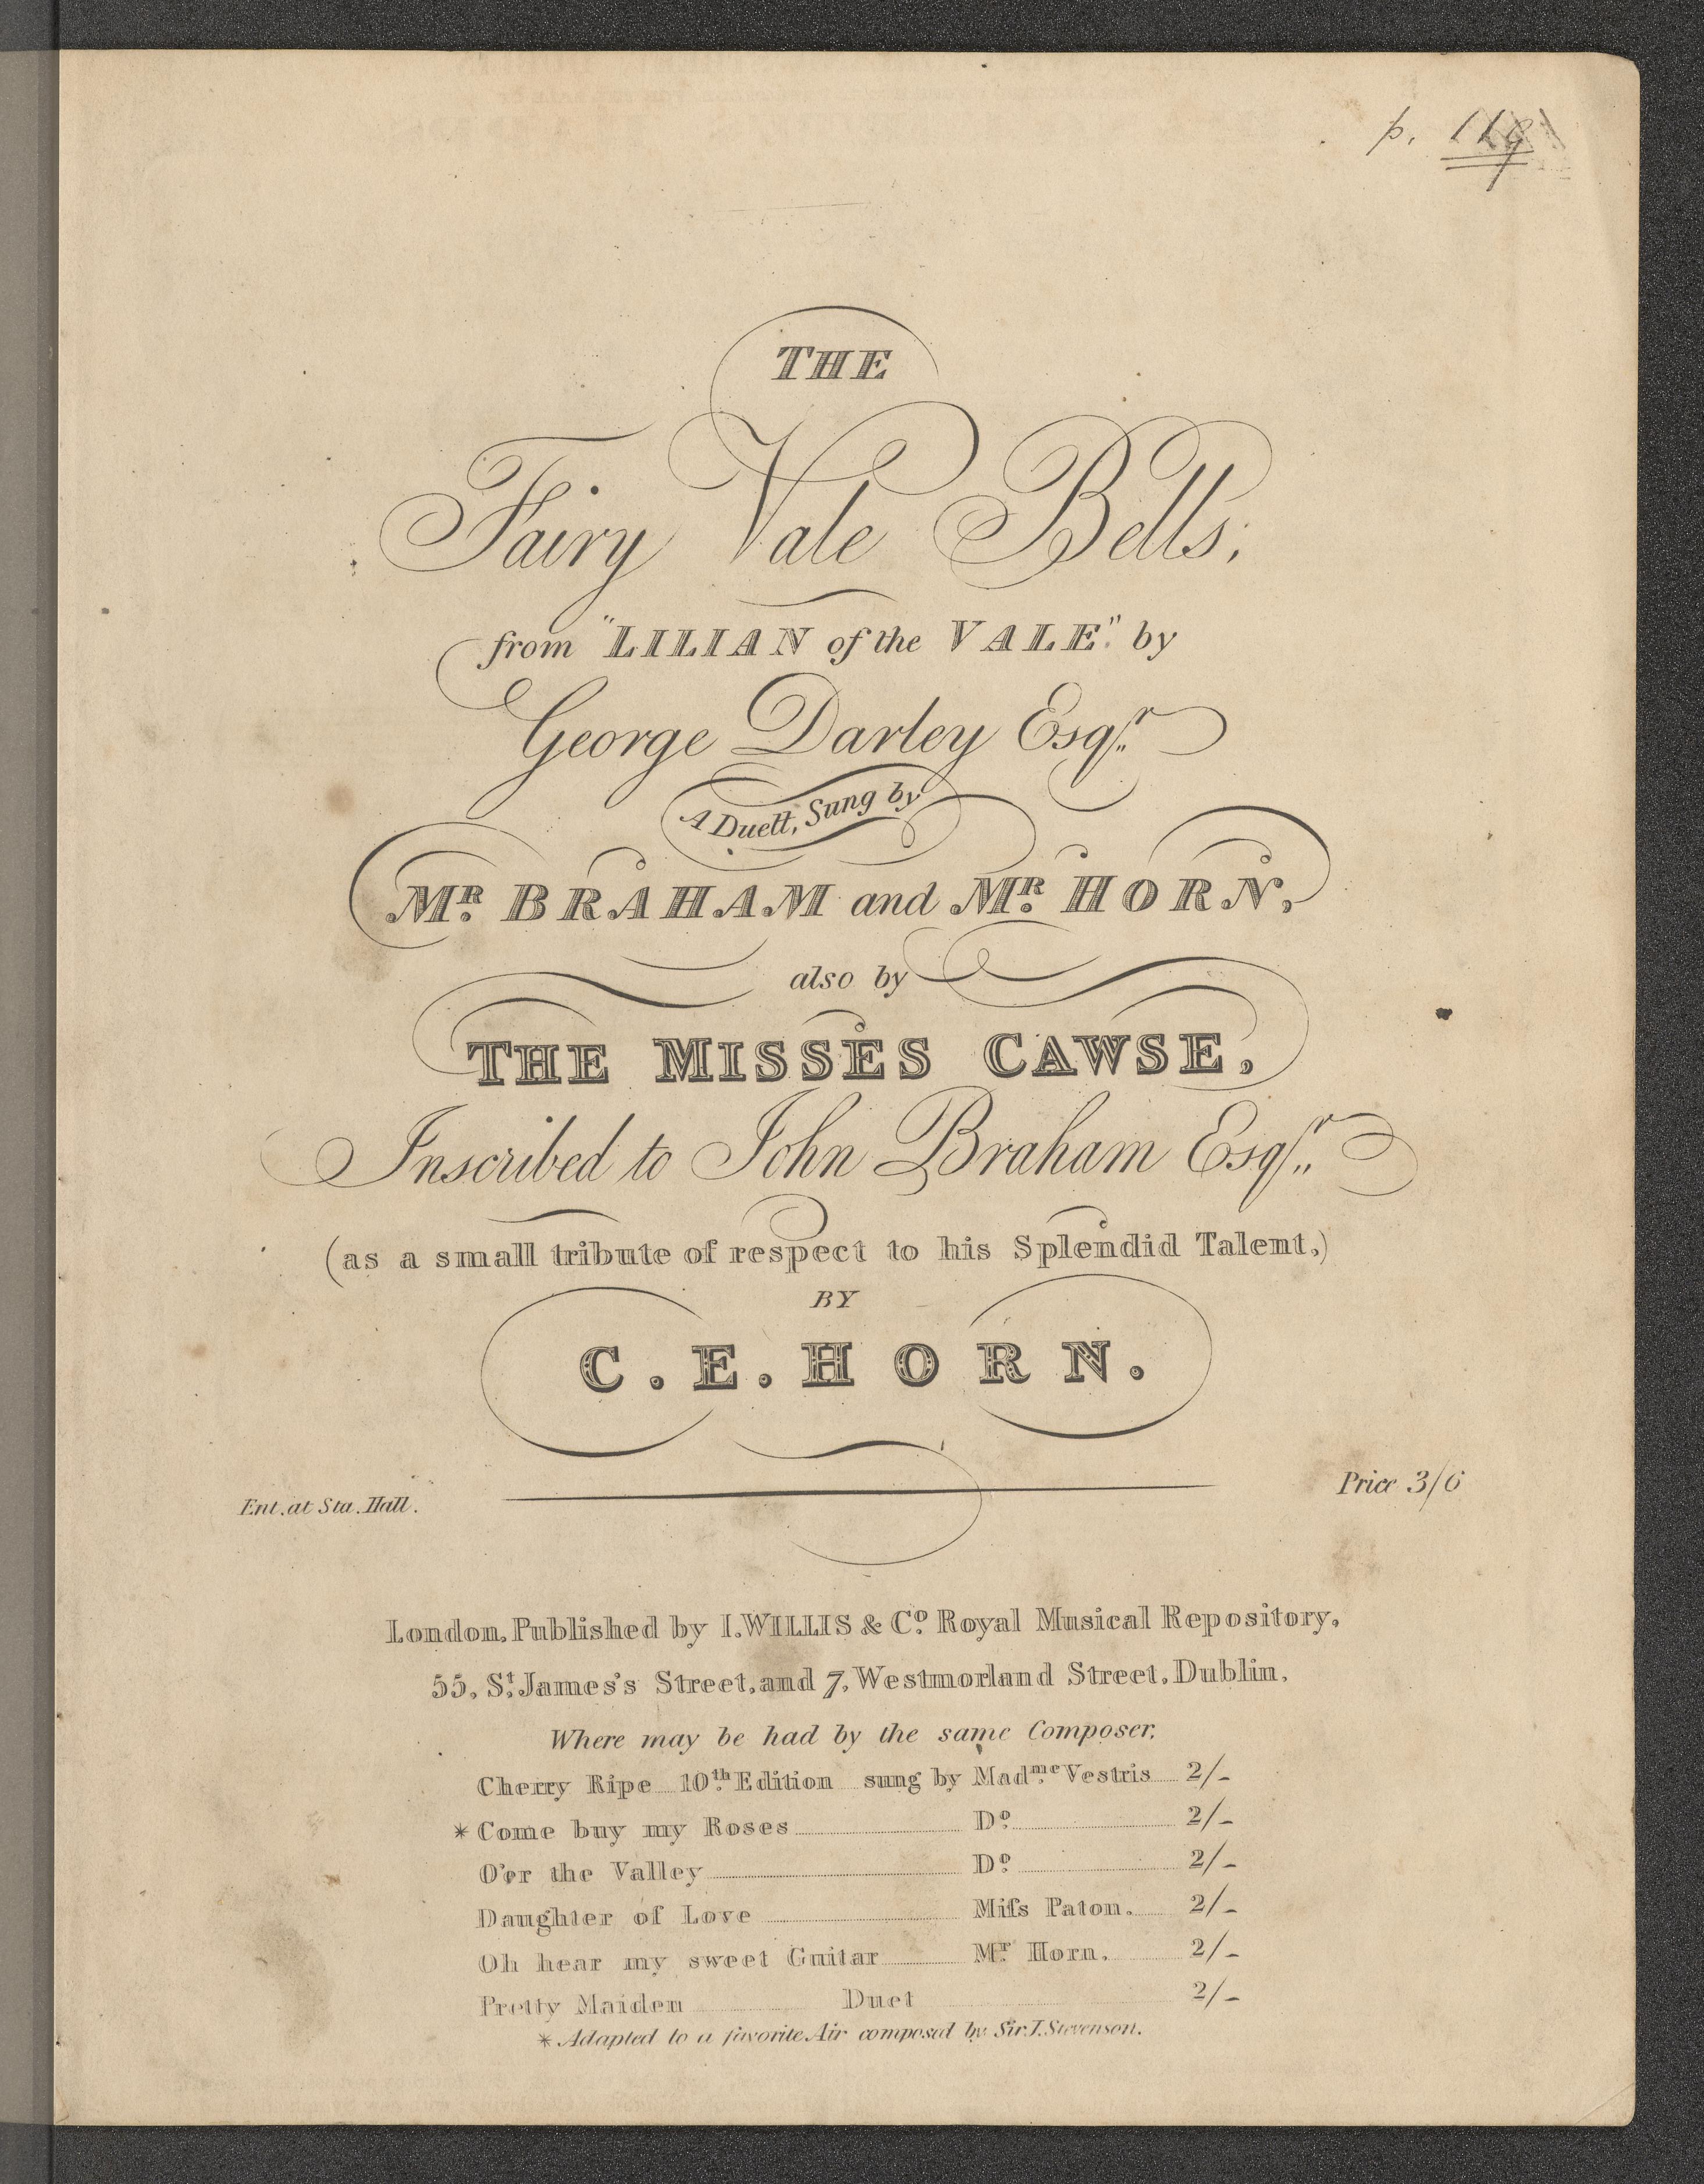 p. 119
THE
Fairy Vale Bells,
from "LILIAN of the VALE." by
George Darley Esqr.
A Duett, Sung by
Mr. BRAHAM and Mr. HORN,
also by
THE MISSES CAWSE,
Inscribed to John Braham Esqr.
(as a small tribute of respect to his Splendid Talent,)
BY
C. E. HORN.
Ent. at Sta. Hall. Price 3/6
London, Published by I. WILLIS & Co. Royal Musical Repository,
55, St. James's Street, and 7, Westmorland Street, Dublin,
Where may be had by the same Composer,
Cherry Ripe 10th. Edition sung by Madme. Vestris 2/-
* Come buy my Roses Do. 2/-
O'er the Valley Do. 2/-
Daughter of Love Miſs Paton. 2/-
Oh hear my sweet Guitar Mr. Horn. 2/-
Pretty Maiden Duet 2/-
* Adapted to a favorite Air composed by Sir J. Stevenson.